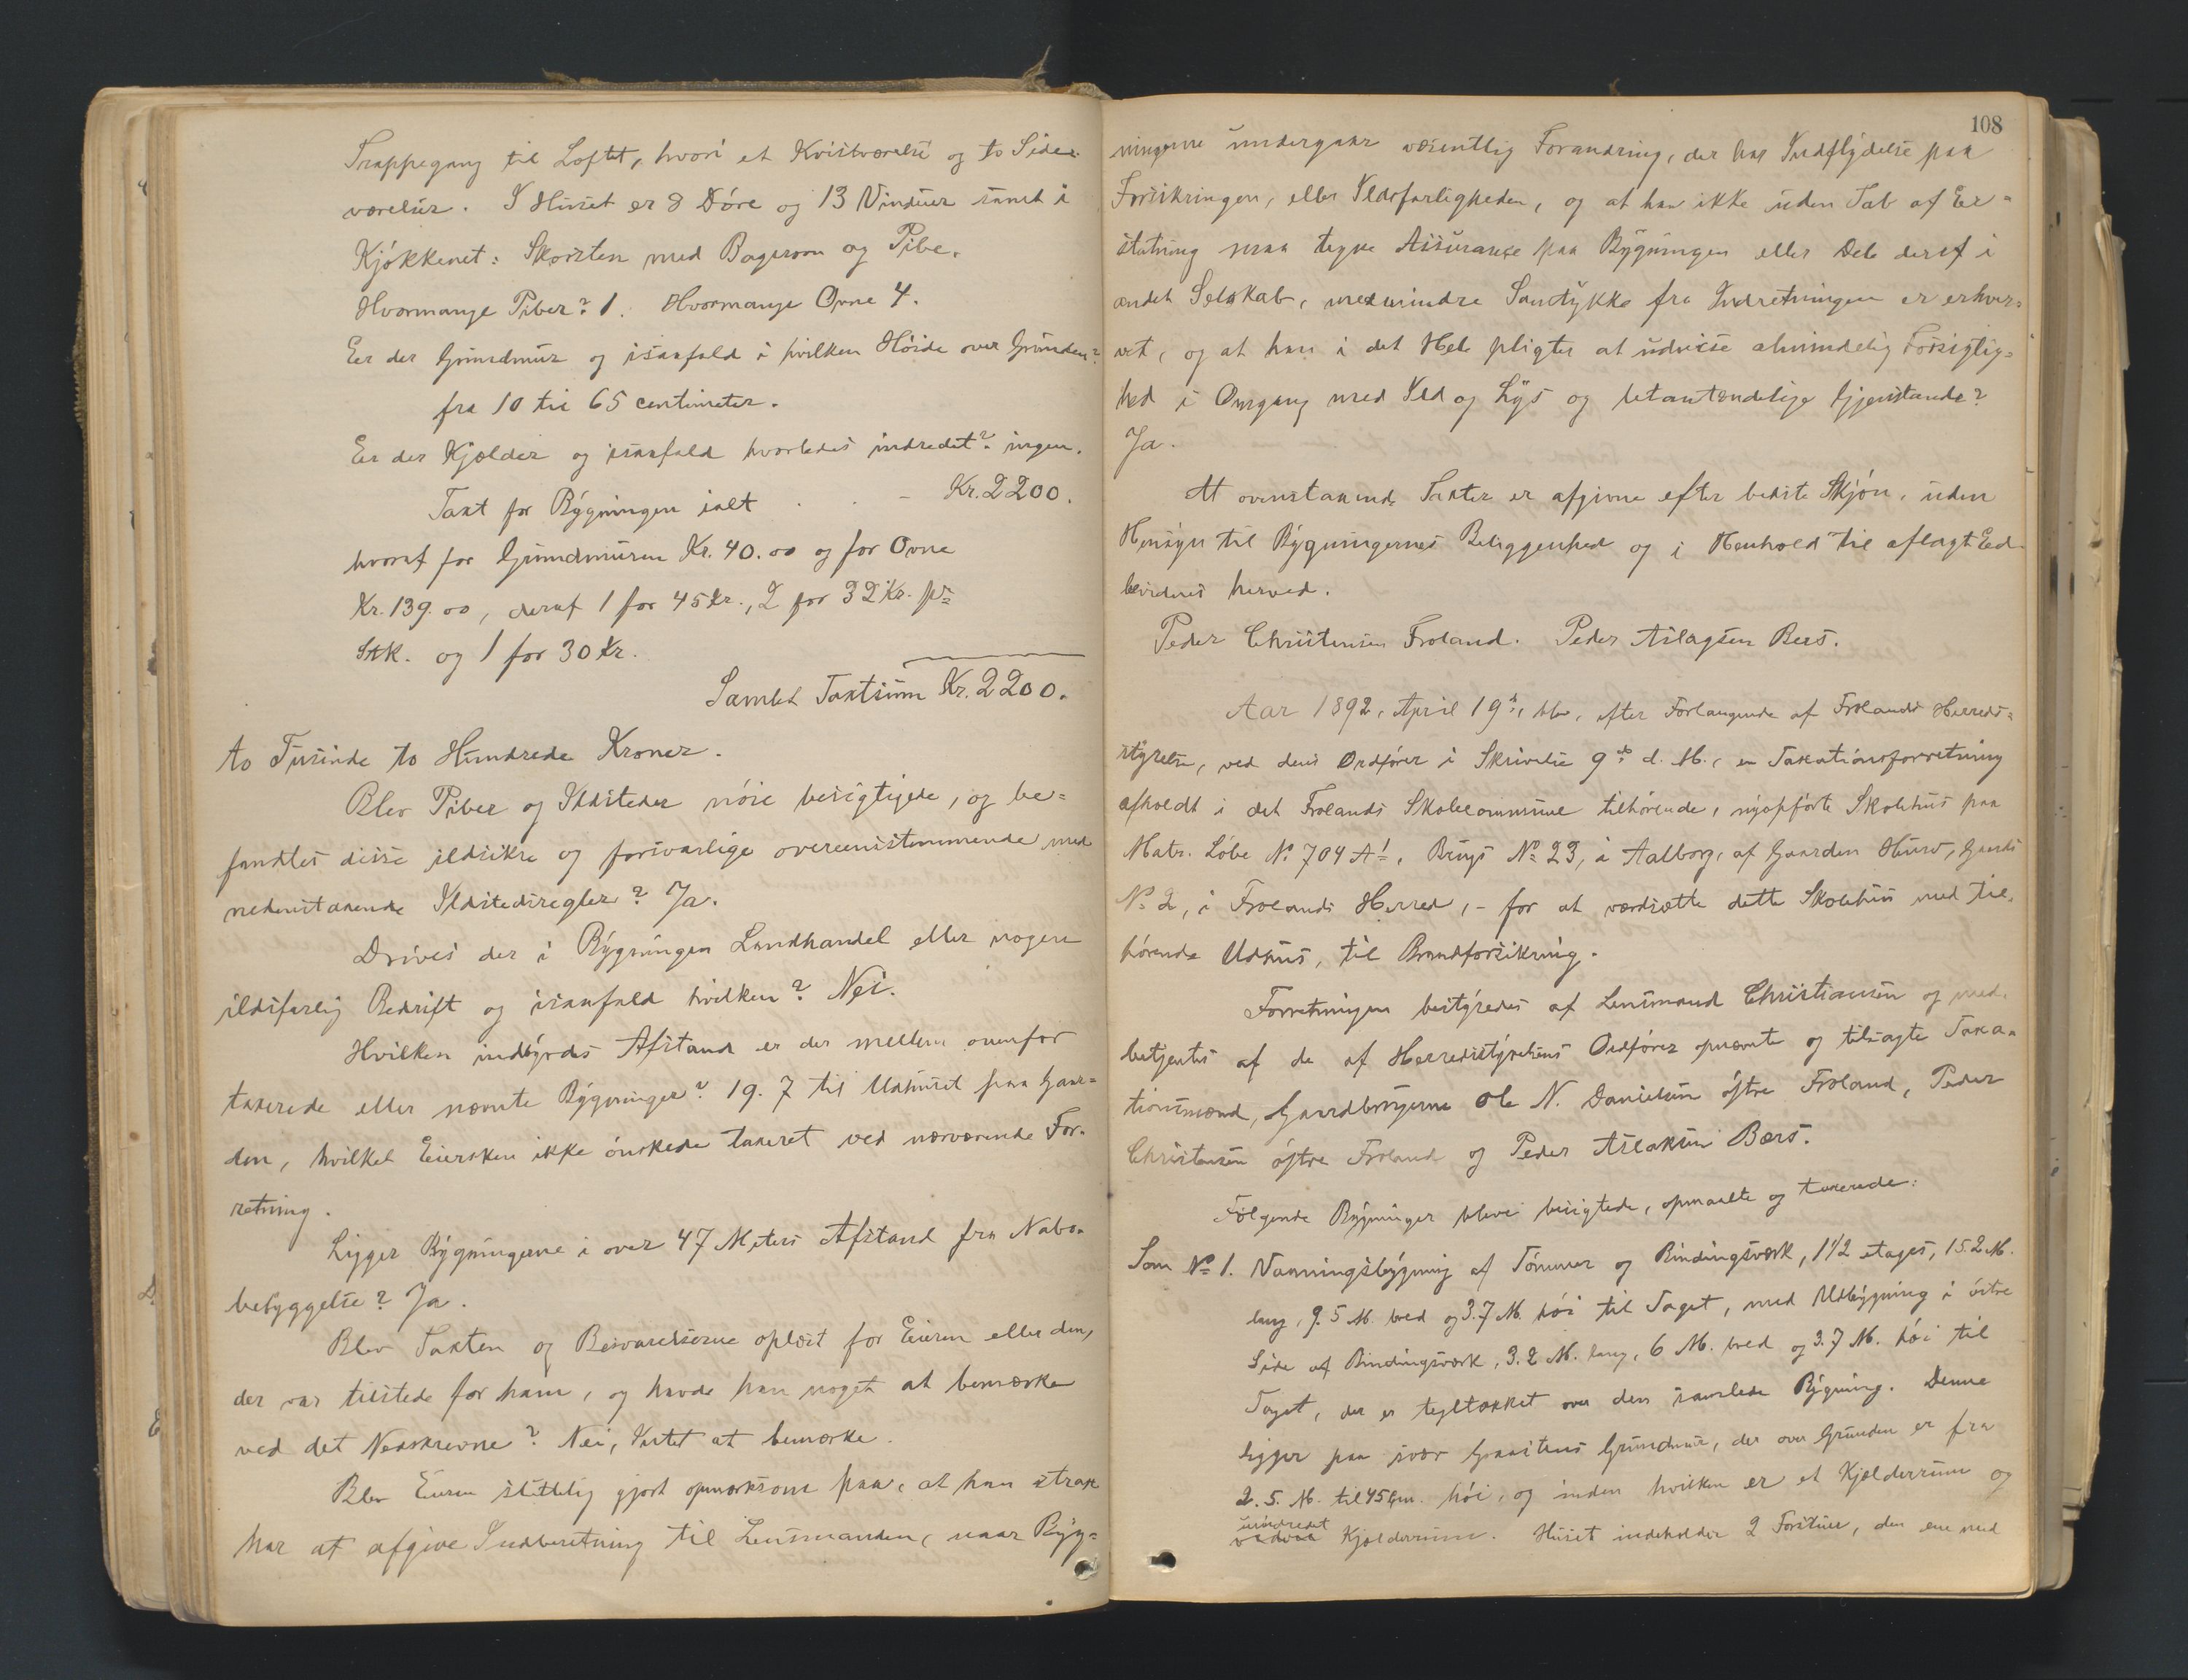 Trappegang til Loftet, hvori et Kvistværelse og to Side-
værelser. I Huset er 8 Döre og 13 Vinduer samt i
Kjökkenet: Skorsten med Bagerovn og Pibe.
Hvormange Piber? 1. Hvormange Ovne 4.
Er der Grundmur og isaafald i hvilken Höide over Grunden?
fra 10 til 65 centimeter.
Er der Kjælder og isaafald hvorledes indredet? ingen.
Taxt for Bygningen ialt . . - Kr. 2200.
hvoraf for Grundmuren Kr. 40.00 og for Ovne
Kr. 139.00, deraf 1 for 45 Kr., 2 for 32 Kr. pr.
Stk. og 1 for 30 Kr.
Samlet Taxtsum Kr. 2200.
to Tusinde to Hundrede Kroner.
Blev Piber og Ildsteder nöie besigtigede, og be-
fandtes disse ildsikre og forsvarlige overeenstemmende med
nedenstaaende Ildstedsregler? Ja.
Drives der i Bygningen Landhandel eller nogen
ildsfarlig Bedrift og isaafald hvilken? Nei.
Hvilken indbyrdes Afstand er der mellem ovenfor
taxerede eller nævnte Bygninger? 19.7 til Udhuset paa Gaar-
den, hvilket Eiersken ikke önskede taxeret ved nærværende For-
retning.
Ligger Bygningerne i over 47 Meters Afstand fra Nabo-
bebyggelse? Ja.
Blev Taxten og Besvarelserne oplæst for Eieren eller den,
der var tilstede for ham, og havde han noget at bemærke
ved det Nedskrevne? Nei, Intet at bemærke.
Blev Eieren sluttelig gjort opmærksom paa, at han strax
har at afgive Indberetning til Lensmanden, naar Byg-
108
ningerne undergaar væsentlig Forandring, der har Indflydelse paa
Forsikringen, eller Ildsfarligheden, og at han ikke uden Tab af Er-
statning maa tegne Assurance paa Bygningen eller Dele deraf i
andet Selskab, medmindre Samtykke fra Indretningen er erhver-
vet, og at han i det Hele pligter at udvise almindelig Forsigtig-
hed i Omgang med Ild og Lys og letantændelige Gjenstande?
Ja.
At ovenstaaende Taxter er afgivne efter bedste Skjön, uden
Hensyn til Bygningernes Beliggenhed og i Henhold til aflagt Eed
bevidnes herved.
Peder Christensen Froland. Peder Aslagsen Bers.
Aar 1892, April 19de, blev, efter Forlangende af Frolands Herreds-
styrelse, ved dens Ordförer i Skrivelse 9de d. M., en Taxationsforretning
afholdt i det Frolands Skolecommune tilhörende, nyopförte Skolehus paa
Matr. Löbe No 704 A1, Brugs No 23, i Aalborg, af Gaarden Hurv, Gaards
No 2, i Frolands Herred, - for at værdsætte dette Skolehus med til-
hörende Udhus, til Brandforsikring.
Forretningen bestyredes af Lensmand Christiansen og med-
betjentes af de af Herredsstyrelsens Ordförer opnævnte og tilsagte Taxa-
tionsmænd, Gaardbrugerne Ole N. Danielsen östre Froland, Peder
Christensen östre Froland og Peder Aslaksen Bærs.
Fölgende Bygninger bleve besigtede, opmaalte og taxerede:
Som No 1. Vaaningsbygning af Tömmer og Bindingsværk, 1 1/2 etages, 15.2 M.
lang, 9.5 M. bred og 3.7 M. höi til Taget, med Udbygning i östre
Side af Bindingsværk, 3.2 M. lang, 6 M. bred og 3.7 M. höi til
Taget, der er tegltækket over den samlede Bygning. Denne
ligger paa svær Graastens Grundmur, der over Grunden er fra
2.5. M. til 45 Cm. höi, og inden hvilken er et Kjælderrum og
uindredet
Kjælderrum. Huset indeholder 2 Forstuer, den ene med